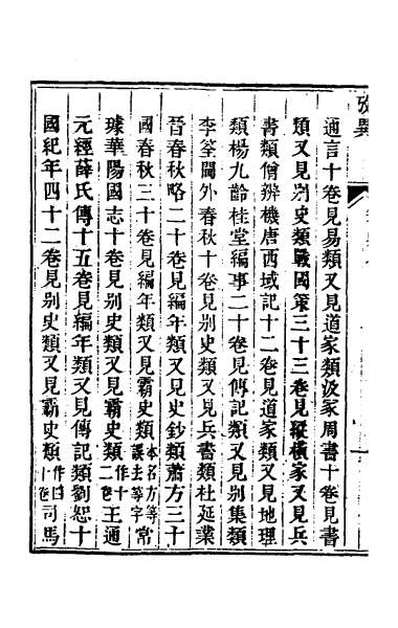 攷異
通言十卷見易類又見道家類汲冢周書十卷見書
類又見别史類戰國策三十三卷見縱橫家又見兵
書類僧辨機唐西域記十二卷見道家類又見地理
類楊九齡桂堂編事二十卷見傳記類又見别集類
李筌閫外春秋十卷見别史類又見兵書類杜延業
晉春秋略二十卷見編年類又見史鈔類蕭方三十
國春秋三十卷見編年類又見霸史類本名方等誤去等字常
璩華陽國志十卷見别史類又見霸史類作十二卷王通
元經薛氏傳十五卷見編年類又見傳記類劉恕十
國紀年四十二卷見别史類又見霸史類作四十卷司馬